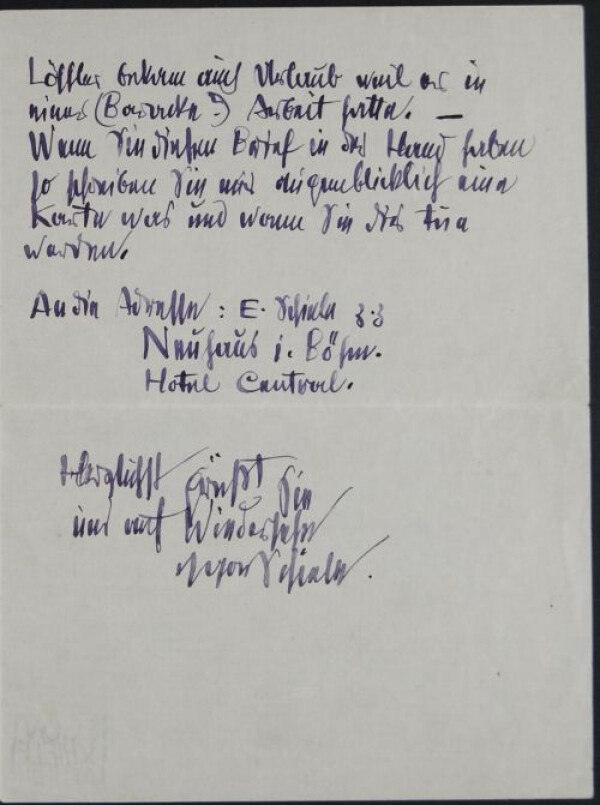 Löffler bekam auch Urlaub weil er in
einer (Baracke?) Arbeit hatte. —
Wenn Sie diesen Brief in der Hand haben
so schreiben Sie mir augenblicklich eine
Karte was und wann Sie dies tun
werden.
An die Adresse: E. Schiele z.Z
Neuhaus i. Böhm.
Hotel Central.
Herzlichst grüßt Sie
und auf Wiedersehn
Egon Schiele.